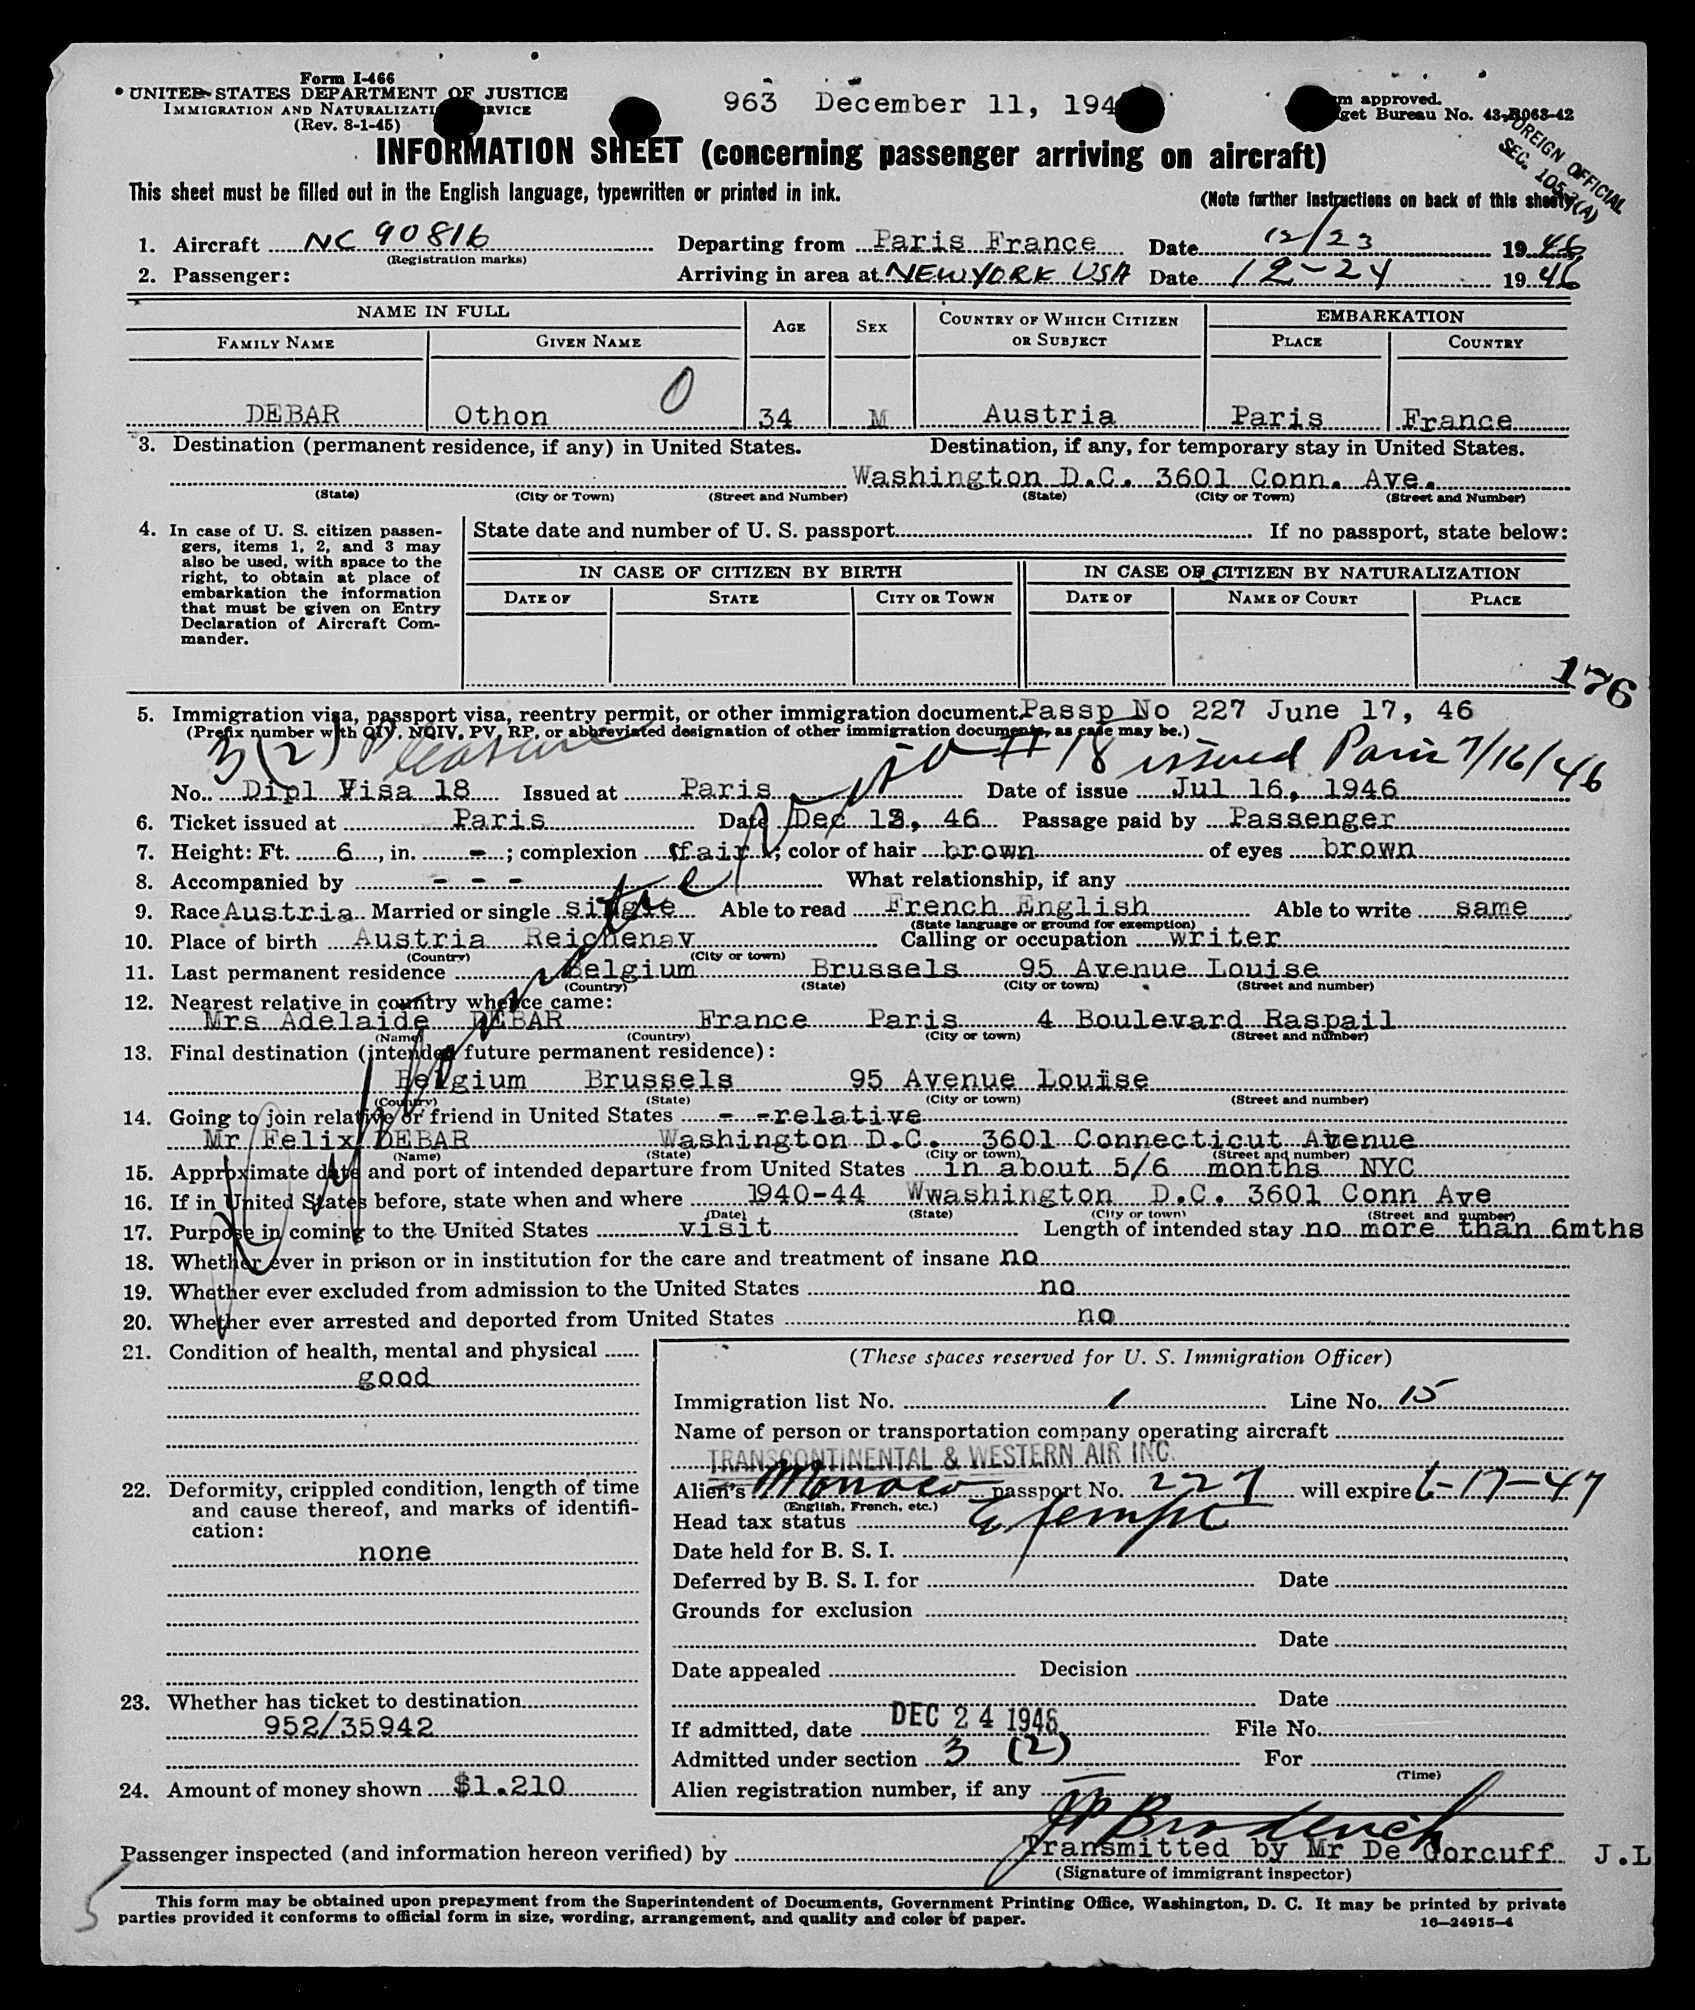 Form I-466
UNITED STATES DEPARTMENT OF JUSTICE
IMMIGRATION AND NATURALIZATION SERVICE
(Rev. 8-1-45)
963 December 11, 194
approved.
get Bureau No. 43-R063-42
FOREIGN OFFICIAL
SEC. 105.3(A)
INFORMATION SHEET (concerning passenger arriving on aircraft)
This sheet must be filled out in the English language, typewritten or printed in ink.
(Note further instructions on back of this sheet)
1. Aircraft NC 90816 Departing from Paris France Date 12/23 1946
(Registration marks)
2. Passenger: Arriving in area at NEW YORK USA Date 12-24 1946
NAME IN FULL AGE SEX COUNTRY OF WHICH CITIZEN OR SUBJECT EMBARKATION
FAMILY NAME GIVEN NAME PLACE COUNTRY
0
DEBAR Othon 34 M Austria Paris France
3. Destination (permanent residence, if any) in United States. Destination, if any, for temporary stay in United States.
Washington D.C. 3601 Conn. Ave.
(State) (City or Town) (Street and Number) (State) (City or Town) (Street and Number)
4. In case of U. S. citizen passengers, items 1, 2, and 3 may also be used, with space to the right, to obtain at place of embarkation the information that must be given on Entry Declaration of Aircraft Commander.
State date and number of U. S. passport If no passport, state below:
IN CASE OF CITIZEN BY BIRTH IN CASE OF CITIZEN BY NATURALIZATION
DATE OF STATE CITY OR TOWN DATE OF NAME OF COURT PLACE
176
5. Immigration visa, passport visa, reentry permit, or other immigration document. Passp No 227 June 17, 46
(Prefix number with QIV, NQIV, PV, RP, or abbreviated designation of other immigration documents, as case may be.)
3(2) Pleasure visa #18 issued Paris 7/16/46
No. Dipl Visa 18 Issued at Paris Date of issue Jul 16, 1946
6. Ticket issued at Paris Date Dec 13, 46 Passage paid by Passenger
7. Height: Ft. 6, in. -; complexion fair; color of hair brown of eyes brown
8. Accompanied by - - - What relationship, if any
9. Race Austria Married or single single Able to read French English Able to write same
(State language or ground for exemption)
10. Place of birth Austria Reichenav Calling or occupation writer
(Country) (City or town)
11. Last permanent residence Belgium Brussels 95 Avenue Louise
(Country) (State) (City or town) (Street and number)
12. Nearest relative in country whence came:
Mrs Adelaide DEBAR France Paris 4 Boulevard Raspail
(Name) (Country) (City or town) (Street and number)
13. Final destination (intended future permanent residence):
Belgium Brussels 95 Avenue Louise
(Country) (State) (City or town) (Street and number)
14. Going to join relative or friend in United States - -relative
Mr Felix DEBAR Washington D.C. 3601 Connecticut Avenue
(Name) (State) (City or town) (Street and number)
15. Approximate date and port of intended departure from United States in about 5/6 months NYC
16. If in United States before, state when and where 1940-44 Wwashington D.C. 3601 Conn Ave
(Date) (State) (City or town) (Street and number)
17. Purpose in coming to the United States visit Length of intended stay no more than 6mths
18. Whether ever in prison or in institution for the care and treatment of insane no
19. Whether ever excluded from admission to the United States no
20. Whether ever arrested and deported from United States no
21. Condition of health, mental and physical
good
22. Deformity, crippled condition, length of time and cause thereof, and marks of identification:
none
23. Whether has ticket to destination
952/35942
24. Amount of money shown $1.210
(These spaces reserved for U. S. Immigration Officer)
Immigration list No. 1 Line No. 15
Name of person or transportation company operating aircraft
TRANSCONTINENTAL & WESTERN AIR INC.
Alien's Monaco passport No. 227 will expire 6-17-47
(English, French, etc.)
Head tax status Exempt
Date held for B. S. I.
Deferred by B. S. I. for Date
Grounds for exclusion
Date
Date appealed Decision
Date
If admitted, date DEC 24 1946 File No.
Admitted under section 3 (2) For
(Time)
Alien registration number, if any
Passenger inspected (and information hereon verified) by Transmitted by Mr De Corcuff J.L
(Signature of immigrant inspector)
5
This form may be obtained upon prepayment from the Superintendent of Documents, Government Printing Office, Washington, D. C. It may be printed by private
parties provided it conforms to official form in size, wording, arrangement, and quality and color of paper.
16—24915-4